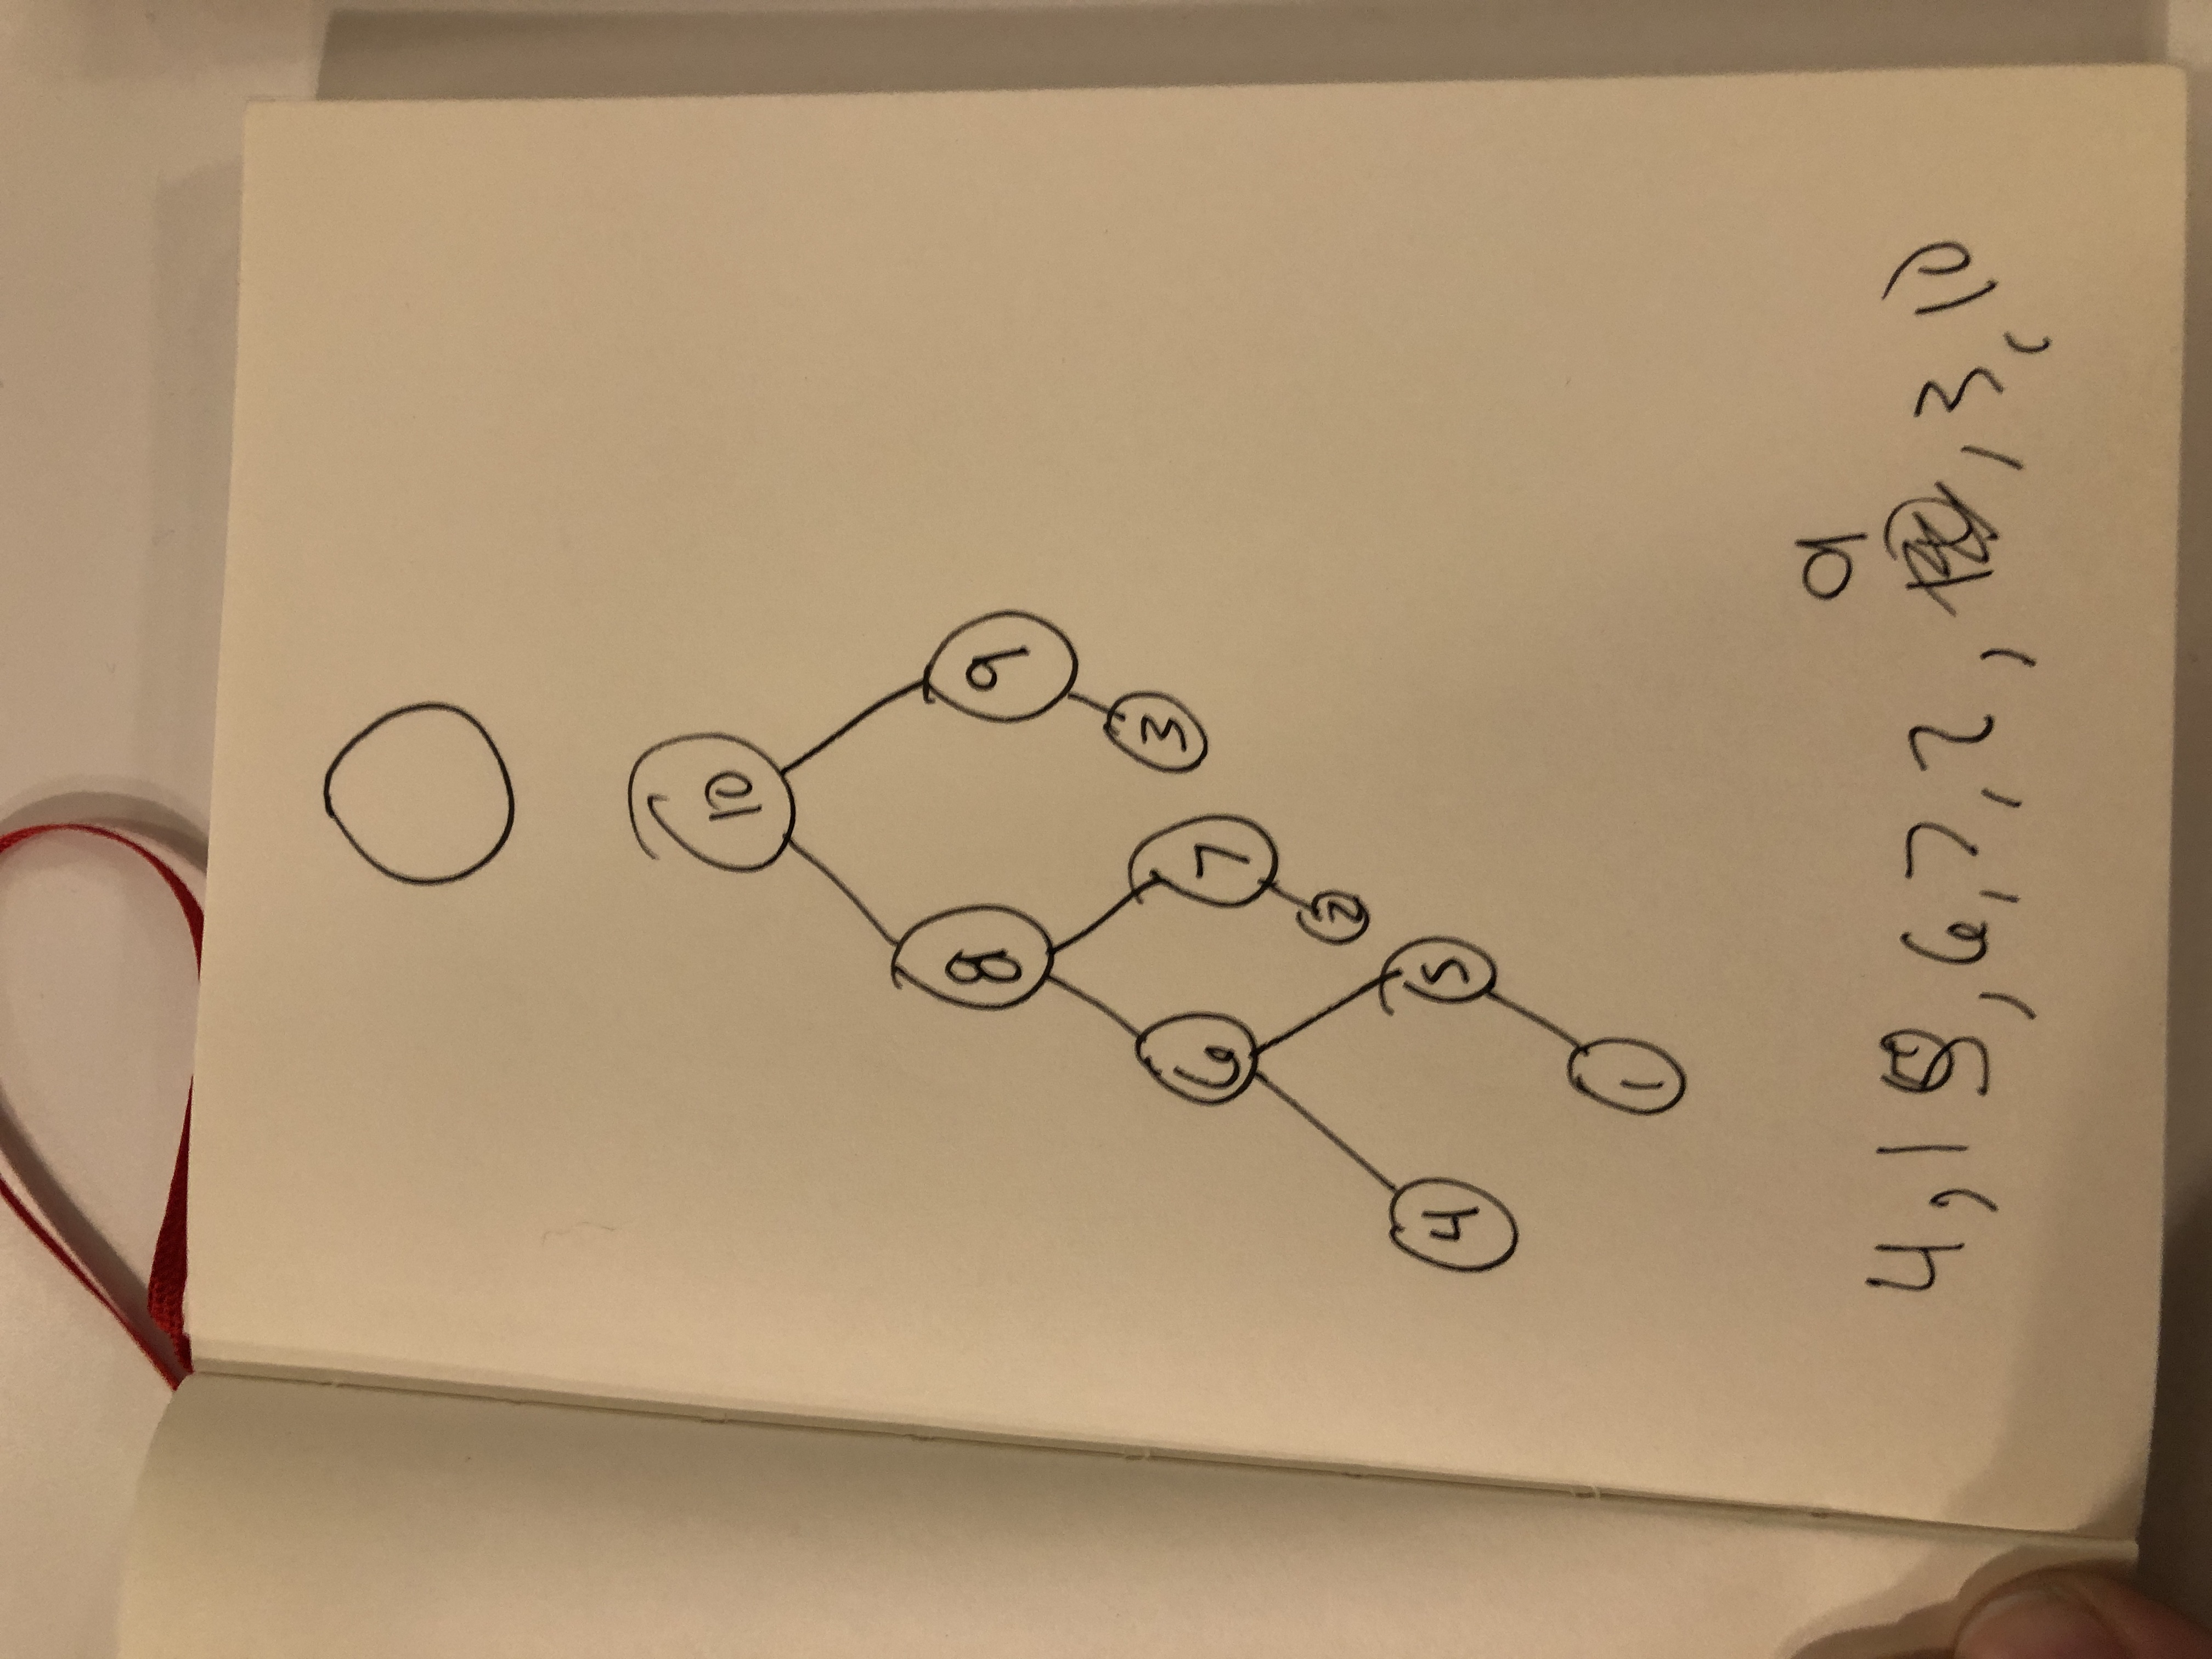 10
8 9
6 7 3
2
4 5
1
9
4, 1 5, 6, 7, 2, , 3, 10